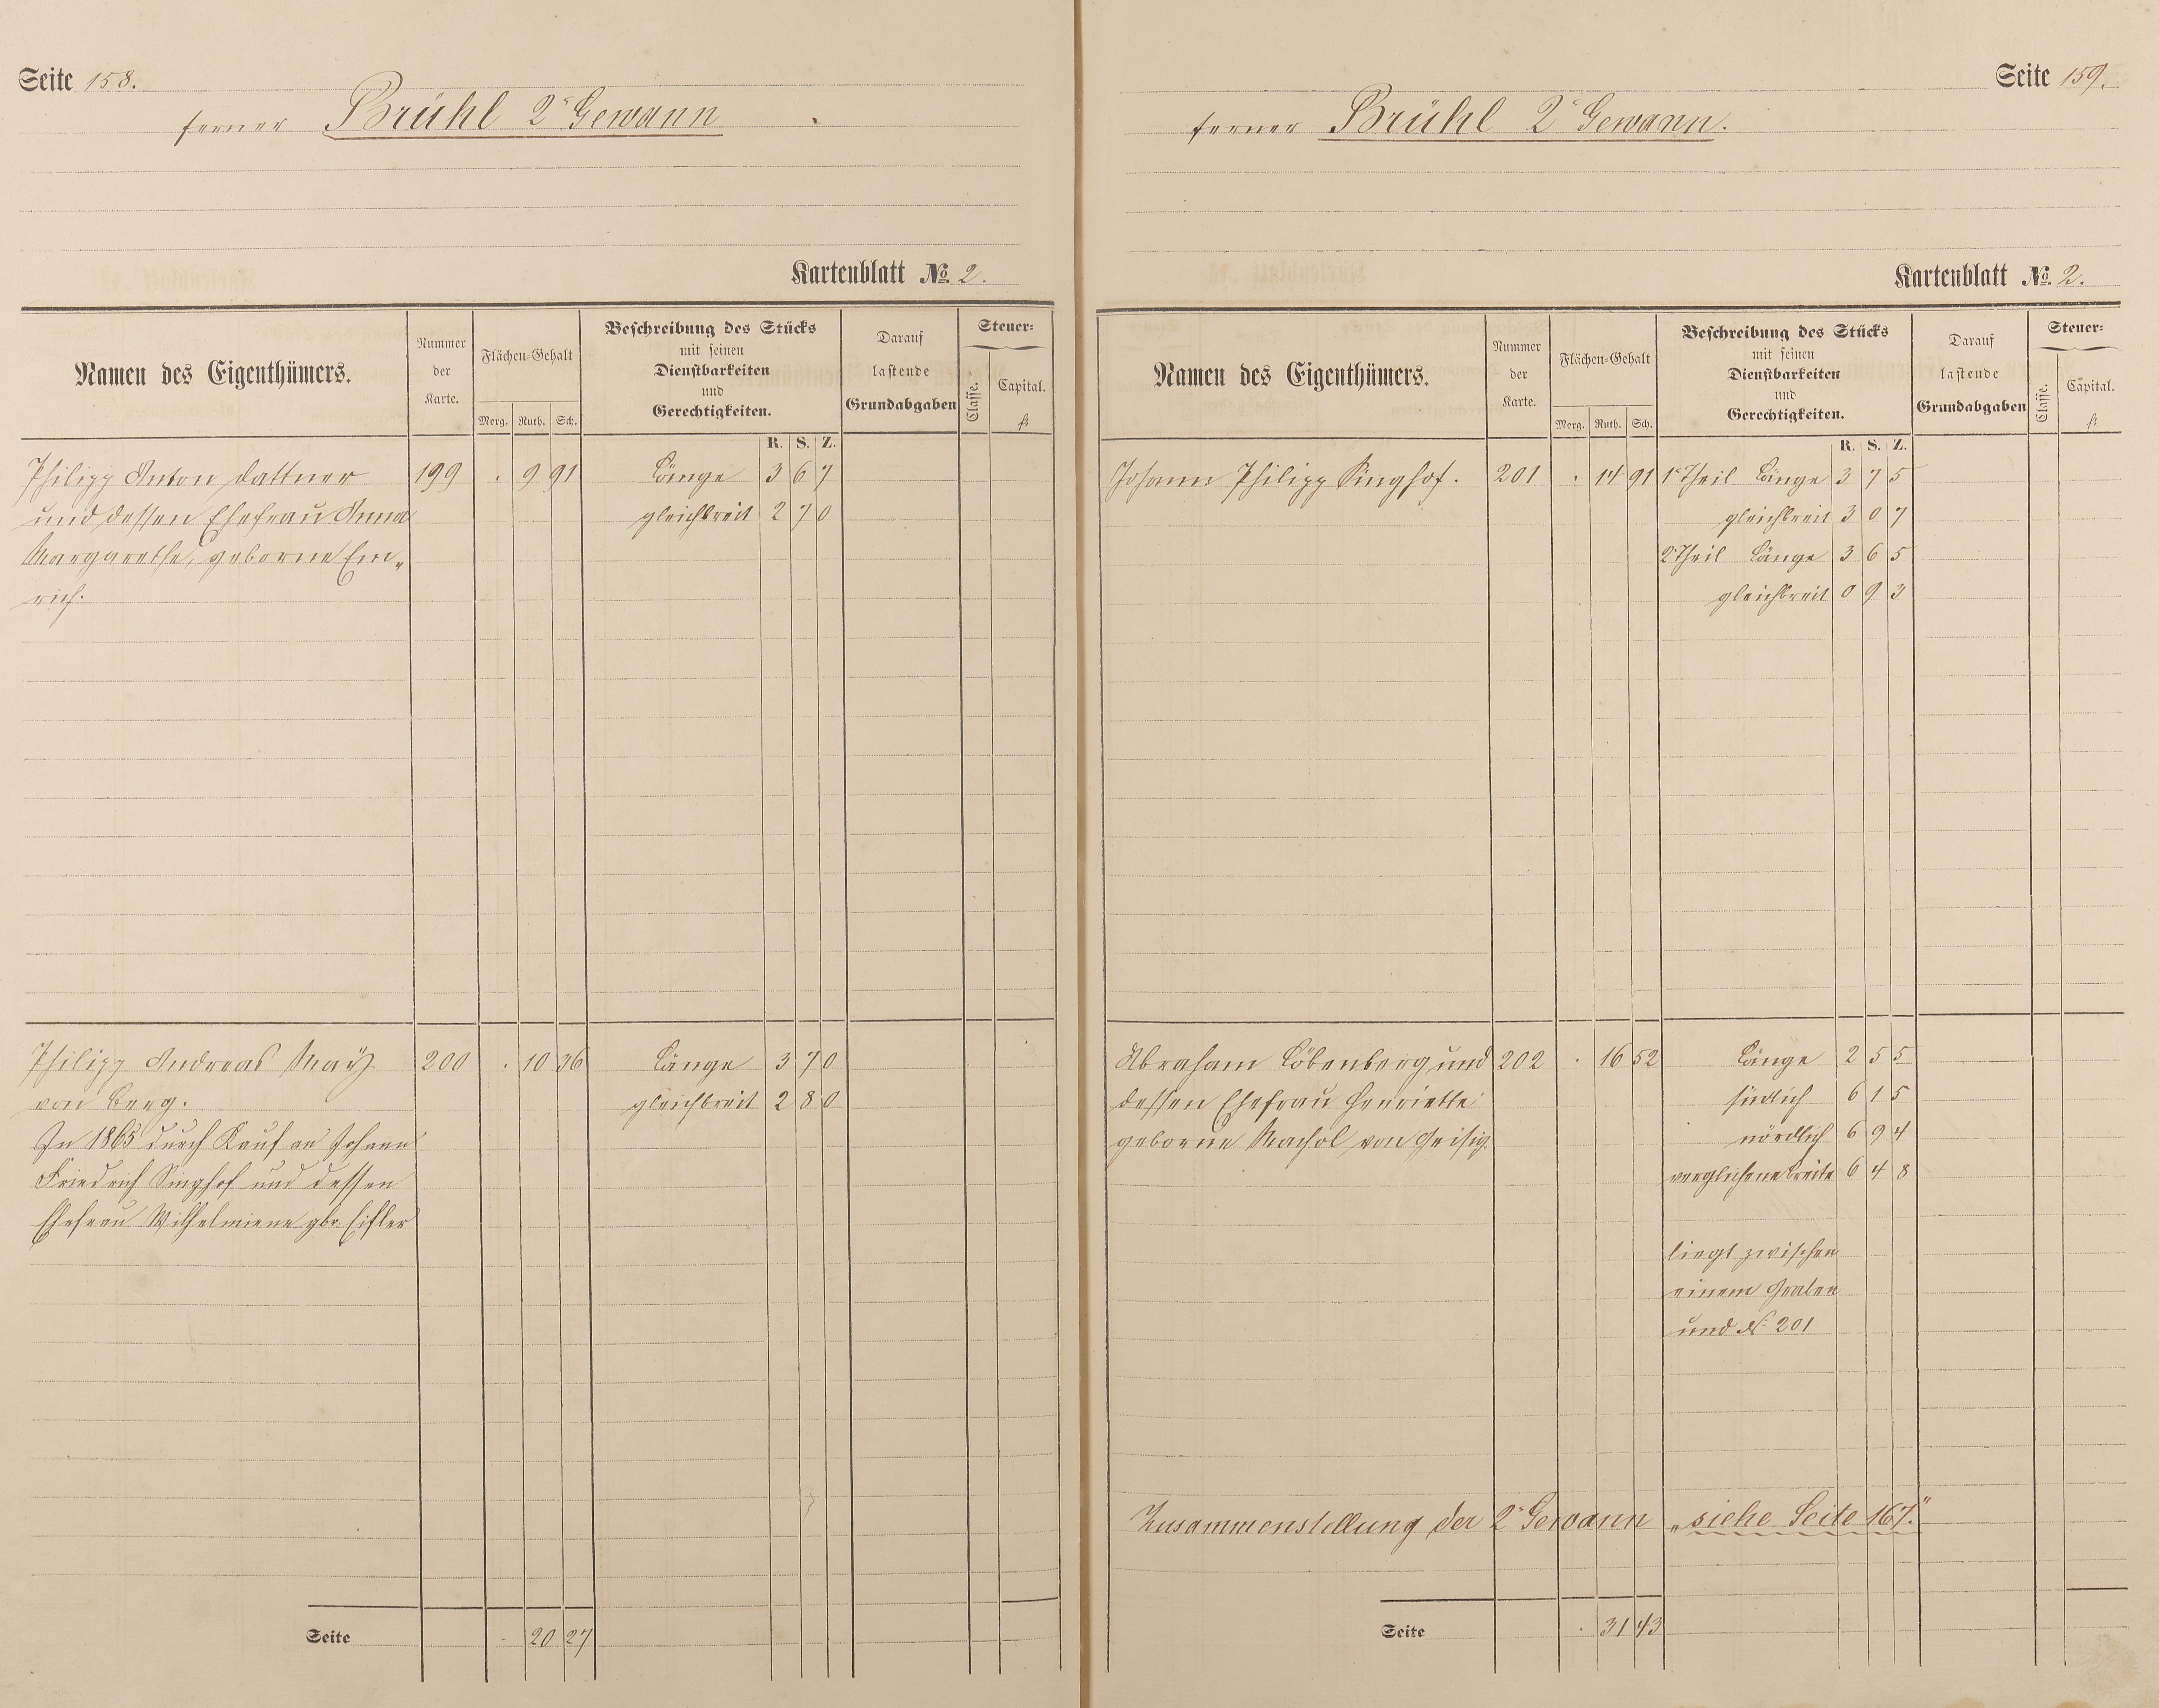 Seite 158.
ferner Brühl 2ᵉ Gewann
Kartenblatt №. 2.
Namen des Eigenthümers.
Nummer der Karte.
Flächen-Gehalt
Morg. Ruth. Sch.
Beschreibung des Stücks
mit seinen
Dienstbarkeiten
und
Gerechtigkeiten.
Darauf
lastende
Grundabgaben
Steuer-
Classe.
Capital.
fl.
R. S. Z.
Philipp Anton Dattner 199 . 9 91 Länge 3 6 7
und dessen Ehefrau Anna gleichbreit 2 7 0
Margarethe, geborne Em„
rich.
Philipp Andreas Maÿ 200 . 10 36 Länge 3 7 0
von Berg. gleichbreit 2 8 0
In 1865 durch Kauf an Johann
Friedrich Singhof und dessen
Ehefrau Wilhelmiene gbr. Eifler
Seite . 20 27
Seite 159.
ferner Brühl 2ᵉ Gewann.
Kartenblatt №. 2.
Namen des Eigenthümers.
Nummer der Karte.
Flächen-Gehalt
Morg. Ruth. Sch.
Beschreibung des Stücks
mit seinen
Dienstbarkeiten
und
Gerechtigkeiten.
Darauf
lastende
Grundabgaben
Steuer-
Classe.
Capital.
fl.
R. S. Z.
Johann Philipp Singhof. 201 . 14 91 1ᵉ Theil Länge 3 7 5
gleichbreit 3 0 7
2ᵉ Theil Länge 3 6 5
gleichbreit 0 9 3
Abraham Löbenberg und 202 . 16 52 Länge 2 5 5
dessen Ehefrau Henriette südlich 6 1 5
geborne Machol von Geisig. nördlich 6 9 4
verglichene Breite 6 4 8
liegt zwischen
einem Graben
und № 201
Zusammenstellung der 2ᵉ Gewann „siehe Seite 167."
Seite . 31 43